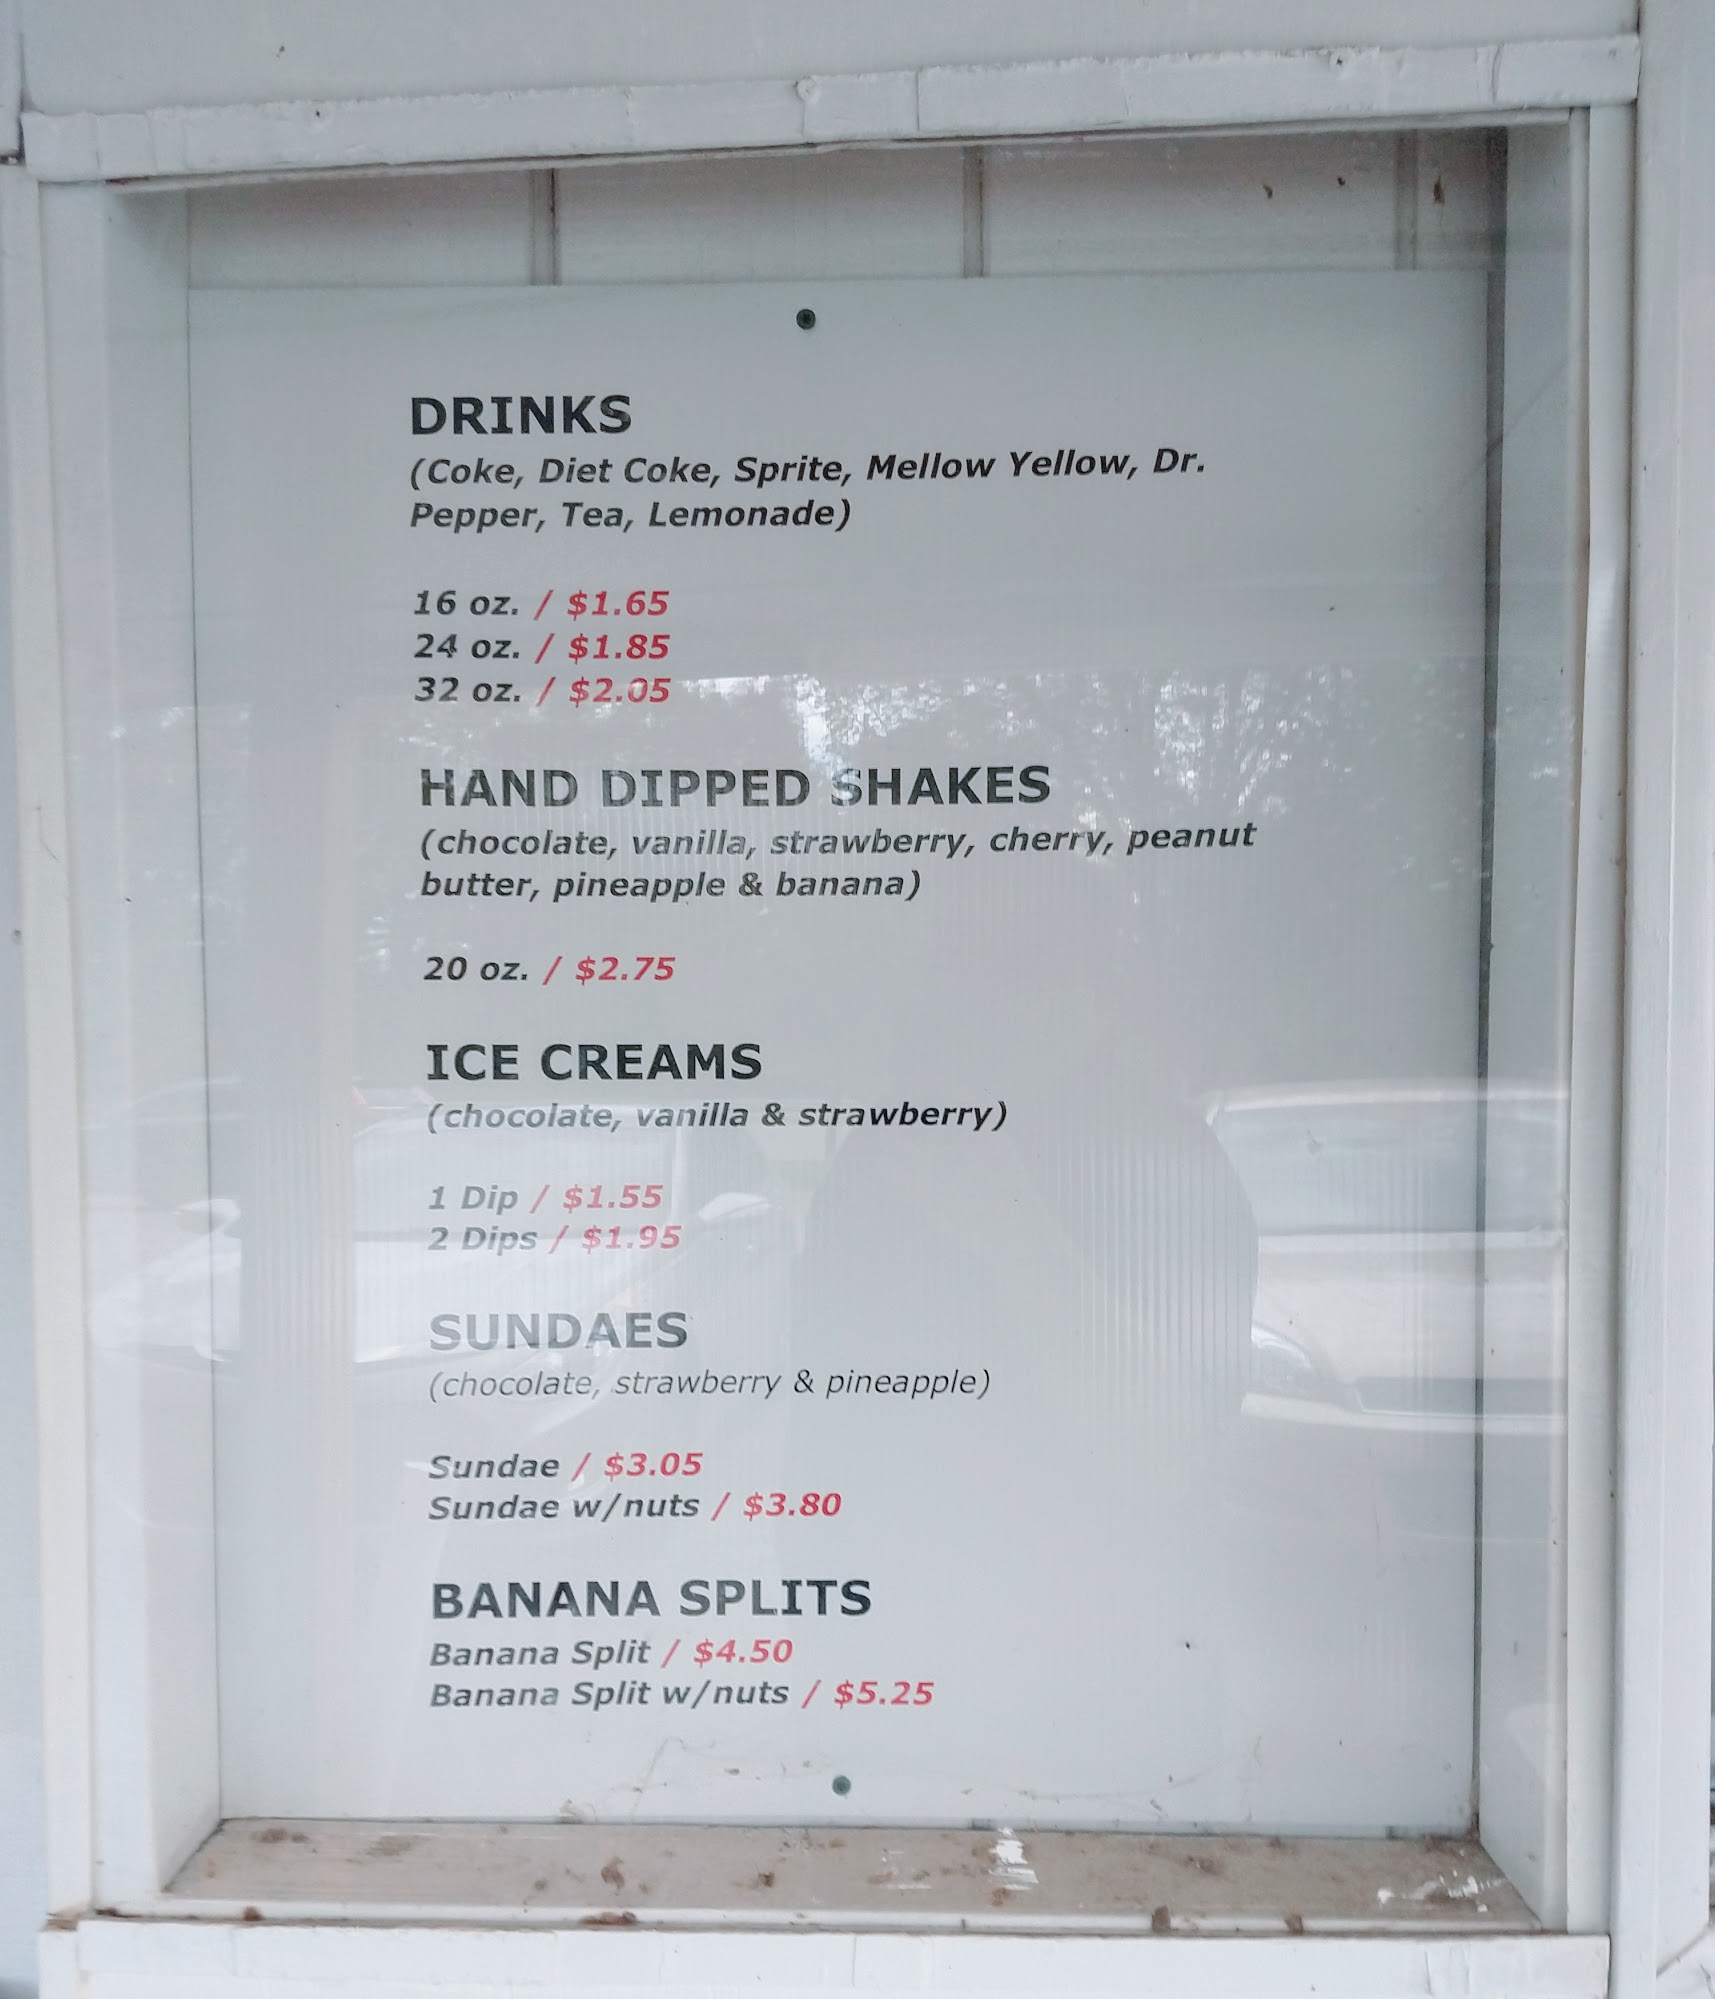 DRINKS
(Coke, Diet Coke, Sprite, Mellow Yellow, Dr.
Pepper, Tea, Lemonade)
16 oz. / $1.65
24 oz. / $1.85
32 oz. / $2.05
HAND DIPPED SHAKES
(chocolate, vanilla, strawberry, cherry, peanut
butter, pineapple & banana)
20 oz. / $2.75
ICE CREAMS
(chocolate, vanilla & strawberry)
1 Dip / $1.55
2 Dips / $1.95
SUNDAES
(chocolate, strawberry & pineapple)
Sundae / $3.05
Sundae w/nuts / $3.80
BANANA SPLITS
Banana Split / $4.50
Banana Split w/nuts / $5.25